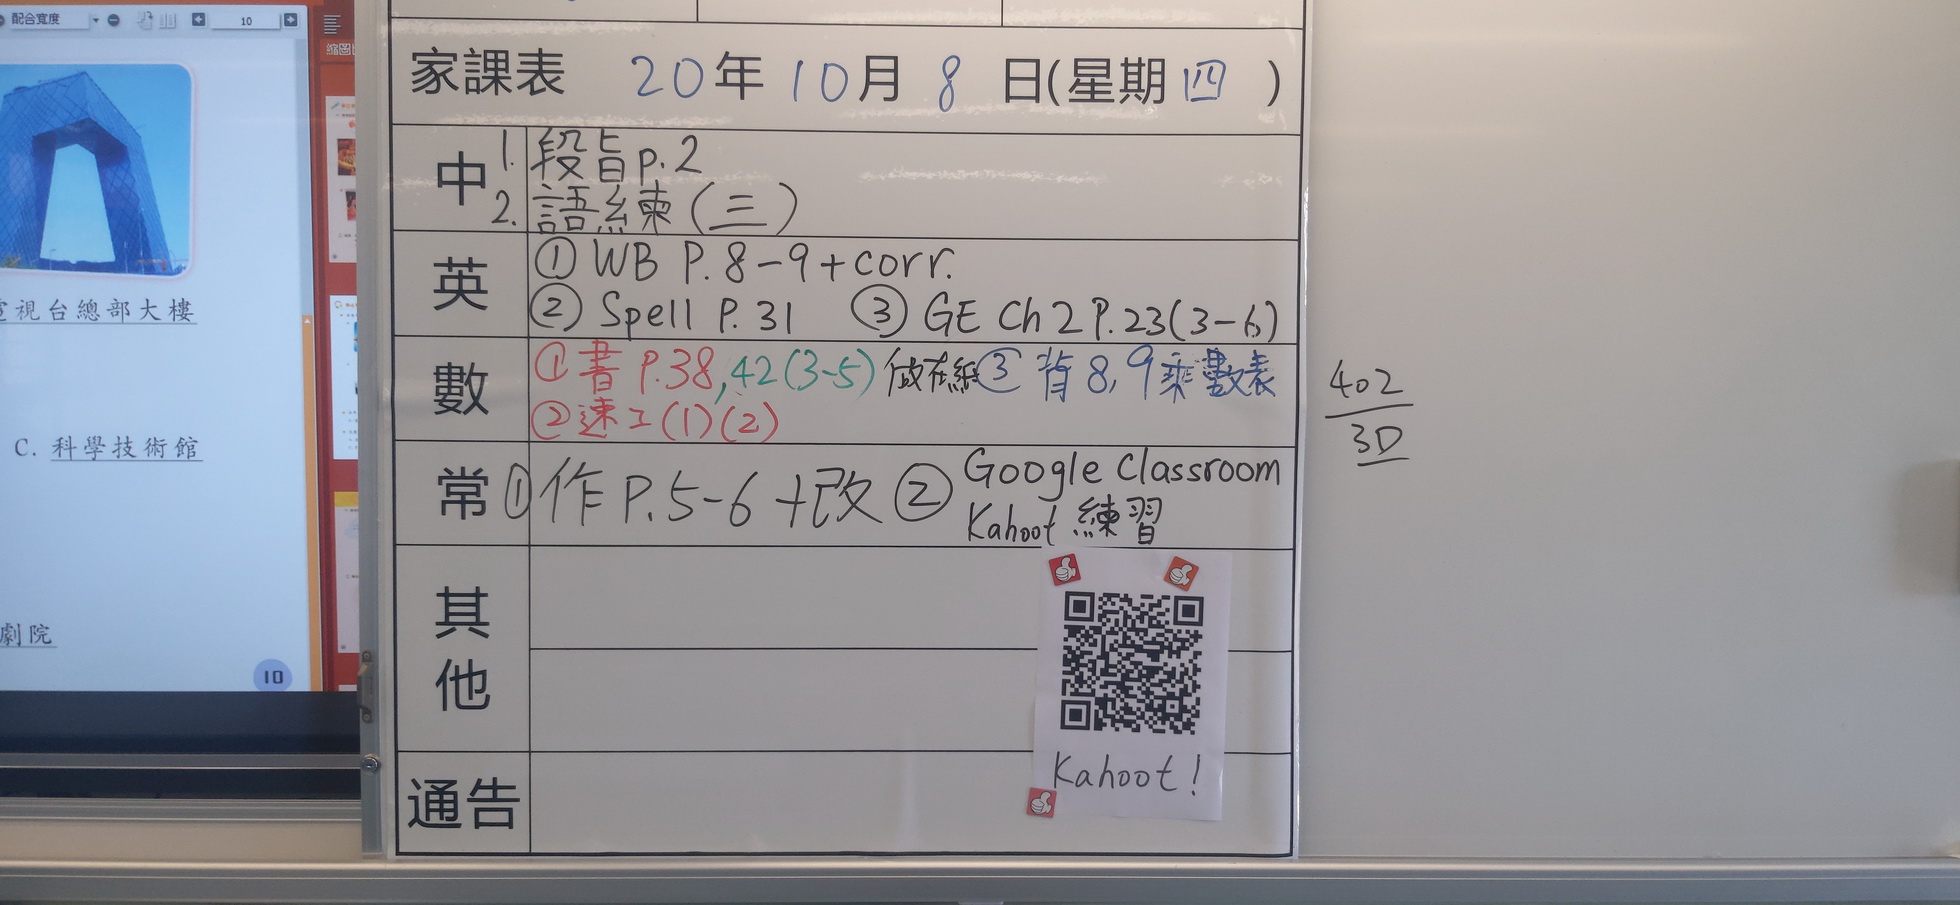 配合寬度
10
電視台總部大樓
C. 科學技術館
劇院
10
家課表 20年10月8日(星期四)
中
1. 段旨p.2
2. 語練(三)
英
① WB P.8-9+corr.
② Spell P.31 ③ GE Ch2 P.23(3-6)
數
① 書 P.38,42(3-5)做在紙 ③ 背8,9乘數表
② 速工(1)(2)
常
① 作P.5-6+改 ② Google Classroom
Kahoot 練習
其他
通告
Kahoot!
402
3D